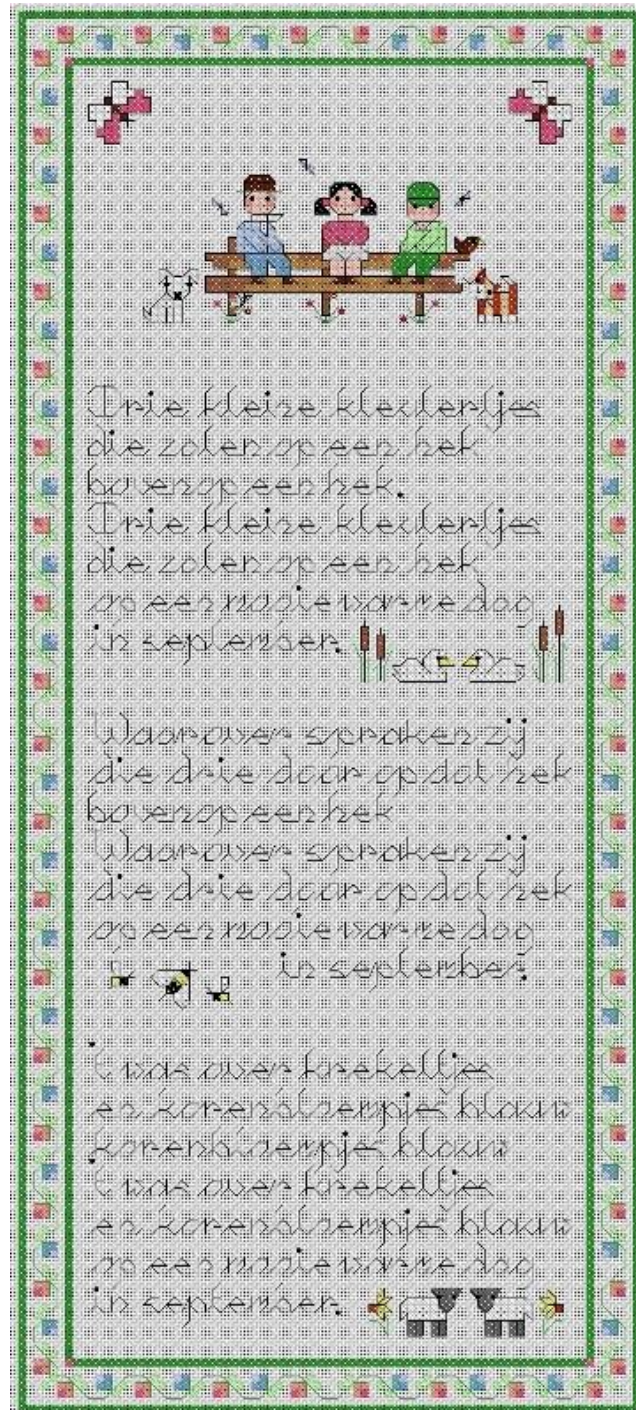 Drie kleine kleutertjes
die zaten op een hek
bovenop een hek.
Drie kleine kleutertjes
die zaten op een hek
op een mooie warme dag
in september.
Waarover spraken zij
die drie daar op dat hek
bovenop een hek
Waarover spraken zij
die drie daar op dat hek
op een mooie warme dag
in september.
't was over krekeltjes
en korenbloempjes blauw
korenbloempjes blauw
't was over krekeltjes
en korenbloempjes blauw
op een mooie warme dag
in september.